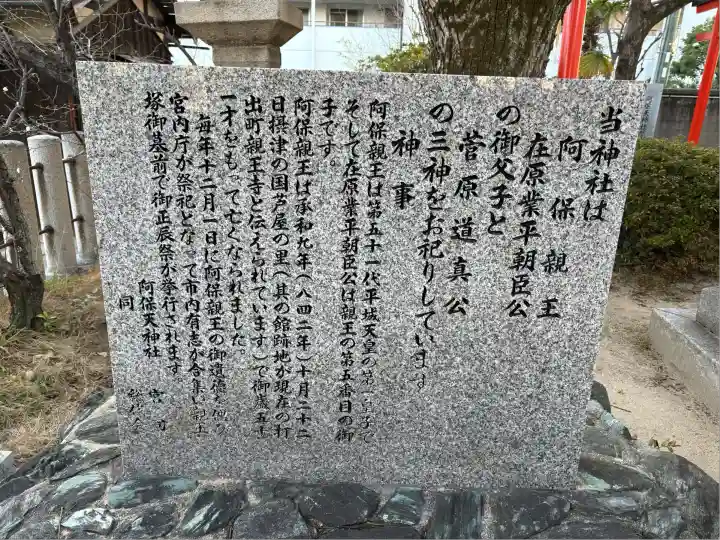 当神社は
阿保親王
在原業平朝臣公
の御父子と
菅原道真公
の三神をお祀りしています
神事
阿保親王は第五十一代平城天皇の第一皇子で
そして在原業平朝臣公は親王の第五番目の御
子です。
阿保親王は承和九年(八四二年)十月二十二
日摂津の国芦屋の里(其の館跡地が現在の打
出町親王寺と伝えられています)で御歳五十
一才をもって亡くなられました。
毎年十二月一日に阿保親王の御遺徳を
宮内庁が祭祀となって市内有志が合集い親王
塚御墓前で御正辰祭が挙行されます。
阿保天神社 宮司
同